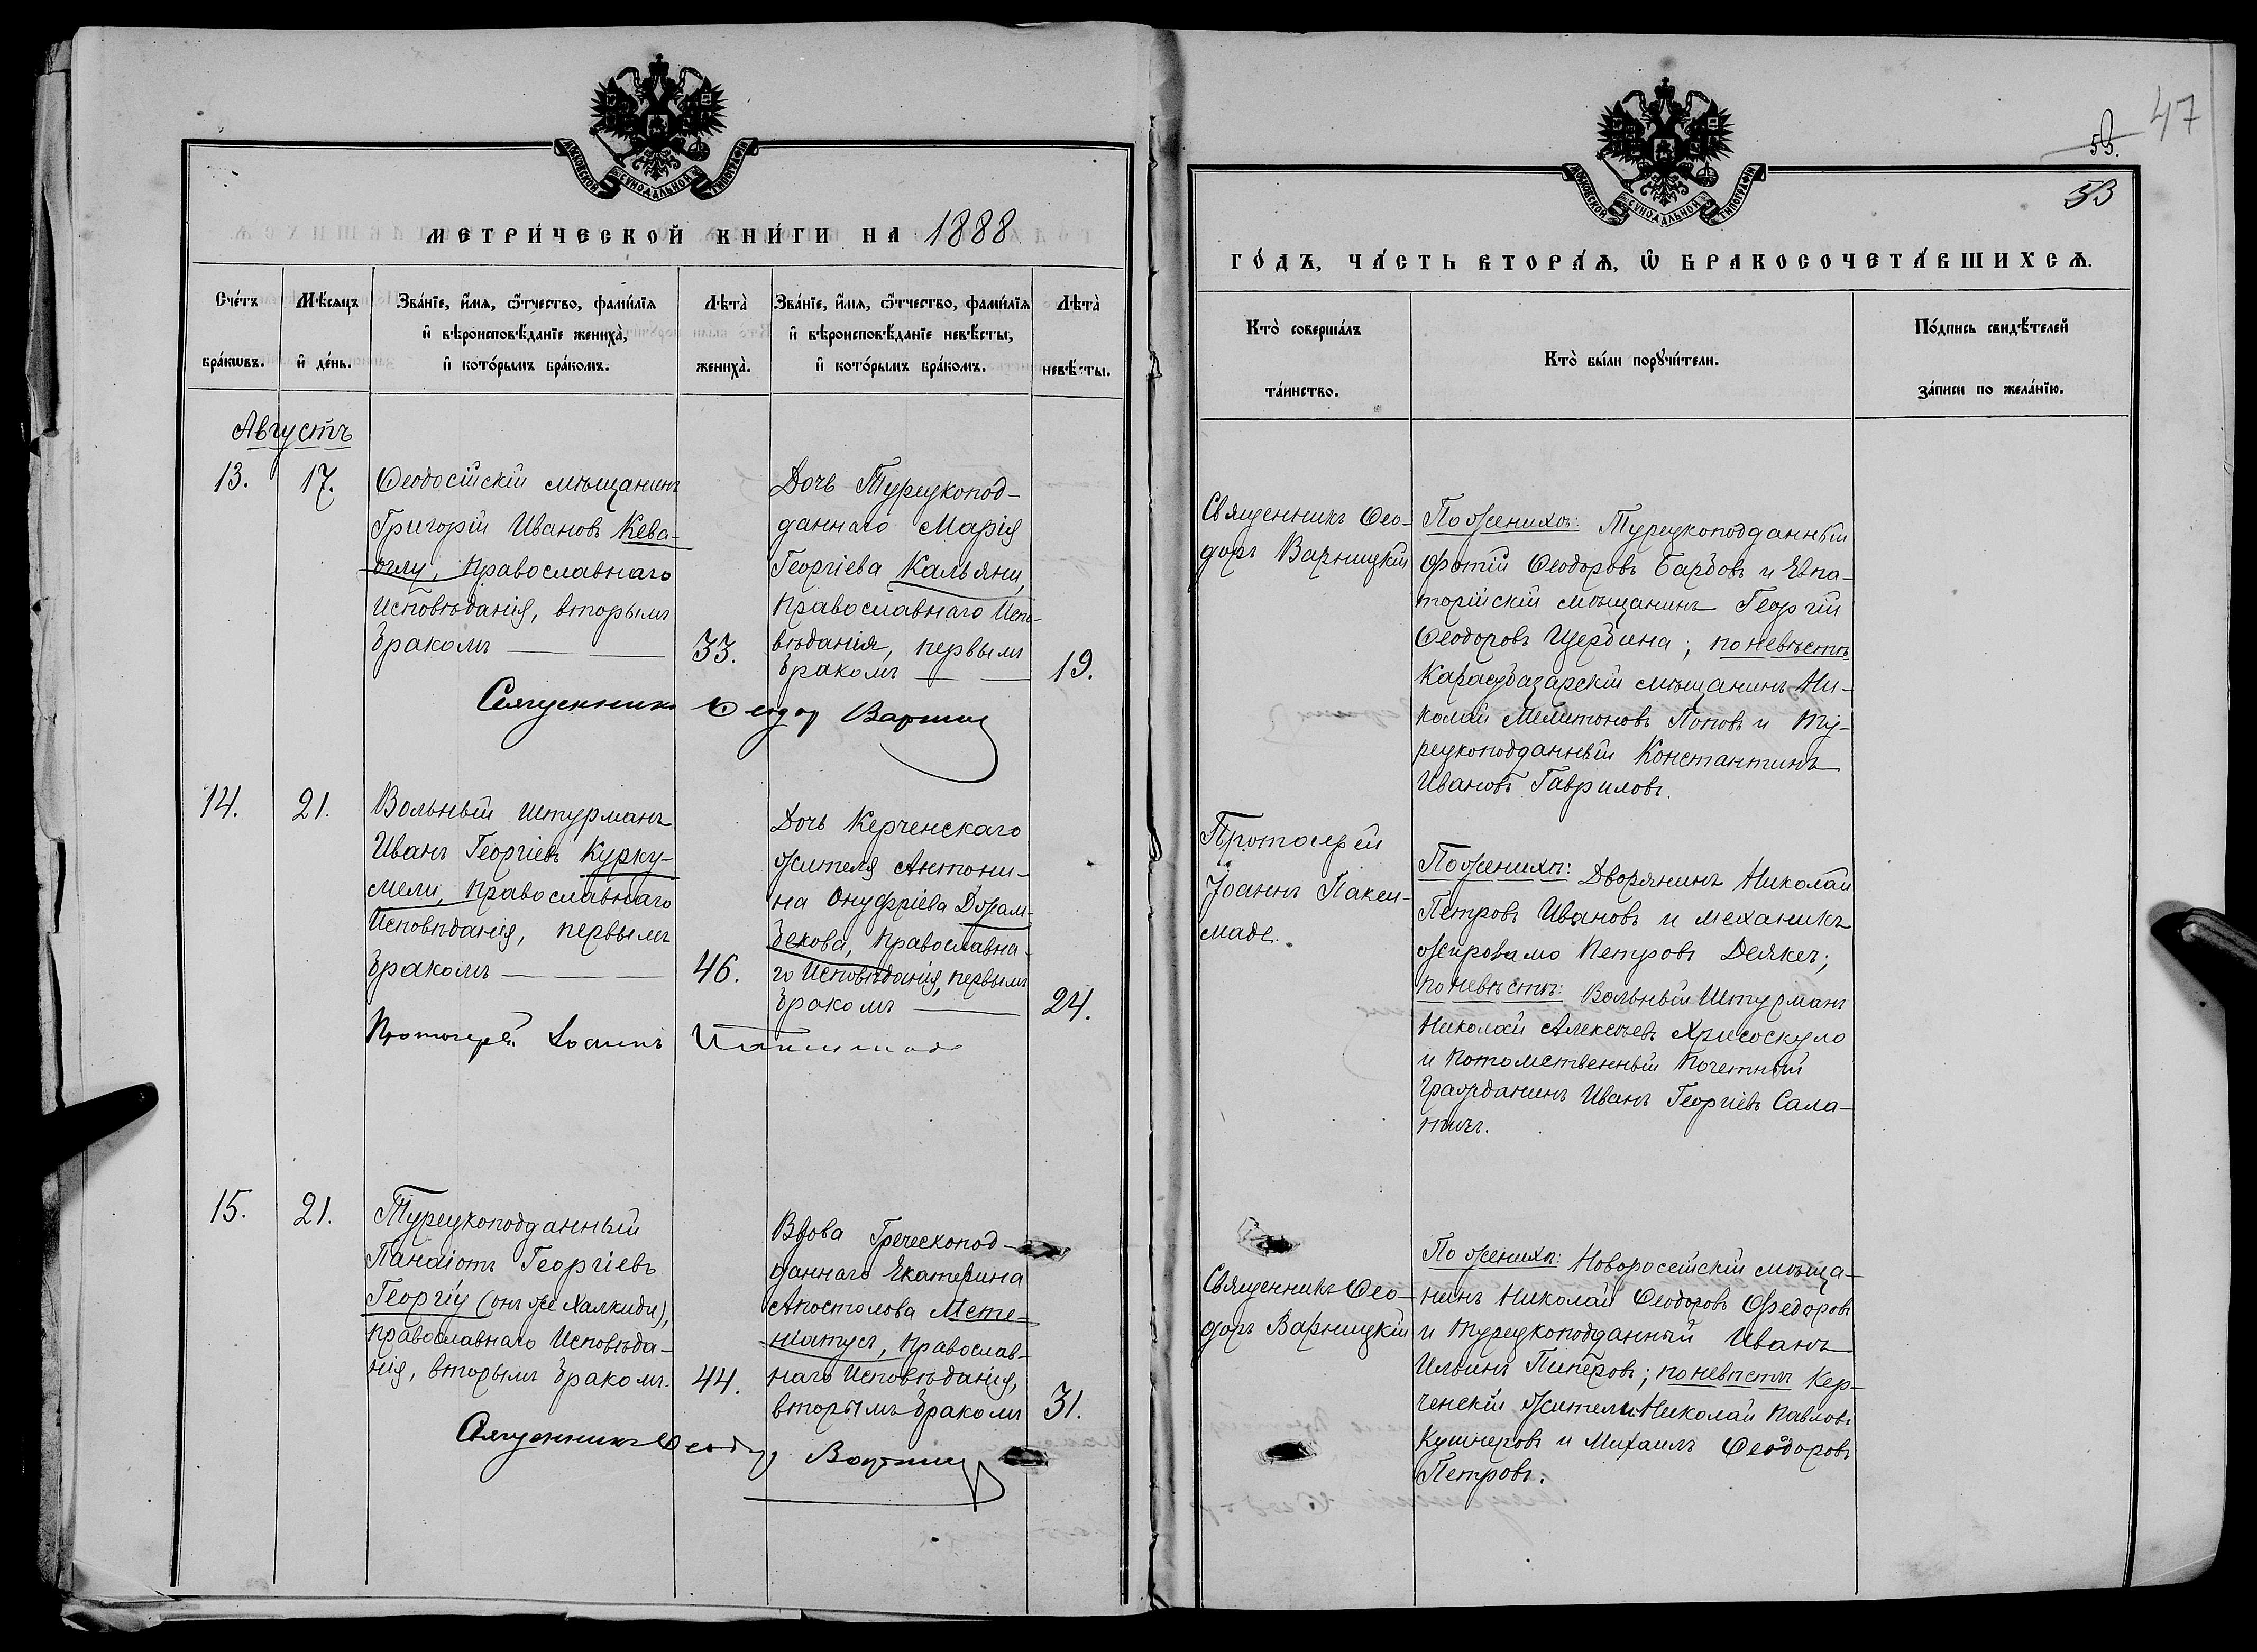 МОСКОВСКОЙ СУНОДАЛЬНОЙ ТИПОГРАФІИ
МЕТРИ́ЧЕСКОЙ КНИ́ГИ НА 1888
Сче́тъ бра́кѡвъ.
Мѣ́сяцъ и҆ де́нь.
Зва́нїе, и҆́мя, ѻ҆́тчество, фами́лїя
и҆ вѣроисповѣ́данїе жениха̀,
и҆ кото́рымъ бра́комъ.
Лѣта̀
жениха̀.
Зва́нїе, и҆́мя, ѻ҆́тчество, фами́лїя
и҆ вѣроисповѣ́данїе невѣ́сты,
и҆ кото́рымъ бра́комъ.
Лѣта̀
невѣ́сты.
Августъ
13.
17.
Ѳеодосійскій мѣщанинъ
Григорій Ивановъ Кева-
оглу, православнаго
исповѣданія, вторымъ
бракомъ
33.
Дочь Турецкопод-
даннаго Марія
Георгіева Кальяни,
православнаго испо-
вѣданія, первымъ
бракомъ
19.
Священникъ Ѳеодор Варниц
14.
21.
Вольный штурманъ
Иванъ Георгіевъ Курку-
мели, православнаго
исповѣданія, первымъ
бракомъ
46.
Дочь Керченскаго
жителя Антони-
на Онуфріева Дорам-
бекова, православна-
го исповѣданія, первымъ
бракомъ
24.
Протоіерей Іоаннъ
15.
21.
Турецкоподданный
Панаіотъ Георгіевъ
Георгіу (онъ же Халкиди),
православнаго исповѣда-
нія, вторымъ бракомъ.
44.
Вдова Греческопод-
даннаго Екатерина
Апостолова Мете-
православ-
наго исповѣданія,
вторымъ бракомъ
31.
Священникъ Ѳеодор Варниц
47
53
МОСКОВСКОЙ СУНОДАЛЬНОЙ ТИПОГРАФІИ
ГО́ДЪ, ЧА́СТЬ ВТОРА́Я, Ѡ҆ БРАКОСОЧЕТА́ВШИХСЯ.
Кто̀ соверша́лъ
та́инство.
Кто̀ бы́ли порꙋчи́тели.
По́дпись свидѣ́телей
за́писи по жела́нїю.
Священникъ Ѳео-
доръ Варницкій
По женихѣ: Турецкоподданный
Фотій Ѳеодоровъ Барбовъ и Евпа-
торійскій мѣщанинъ Георгій
Ѳеодоровъ Щербина; по невѣстѣ
Карасубазарскій мѣщанинъ Ни-
колай Мелитоновъ Поповъ и Ту-
рецкоподданный Константинъ
Ивановъ Гавриловъ.
Протоіерей
Іоаннъ Пакси-
маде.
По женихѣ: Дворянинъ Николай
Петровъ Ивановъ и механикъ
Петровъ
по невѣстѣ: Вольный Штурманъ
Николай Алексѣевъ Хрисоскуло
и потомственный почетный
гражданинъ Иванъ Георгіевъ Сала-
Священникъ Ѳео-
доръ Варницкій
По женихѣ: Новоросейскій мѣща-
нинъ Николай Ѳеодоровъ Ѳедоровъ
и турецкоподданный Иванъ
Ильинъ Пиперовъ; по невѣстѣ Кер-
ченскій житель Николай Павловъ
Кушнеровъ и Михаилъ Ѳеодоровъ
Петровъ.